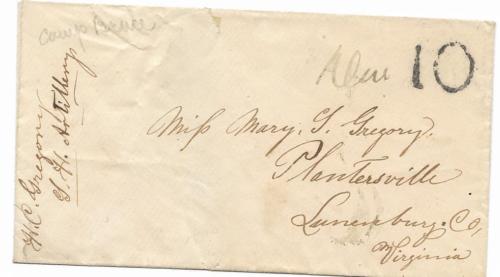 Camp
10
H. C. Gregory
Artillery
Miſs Mary. S. Gregory.
Plantersville
Lunenburg. Co,
Virginia